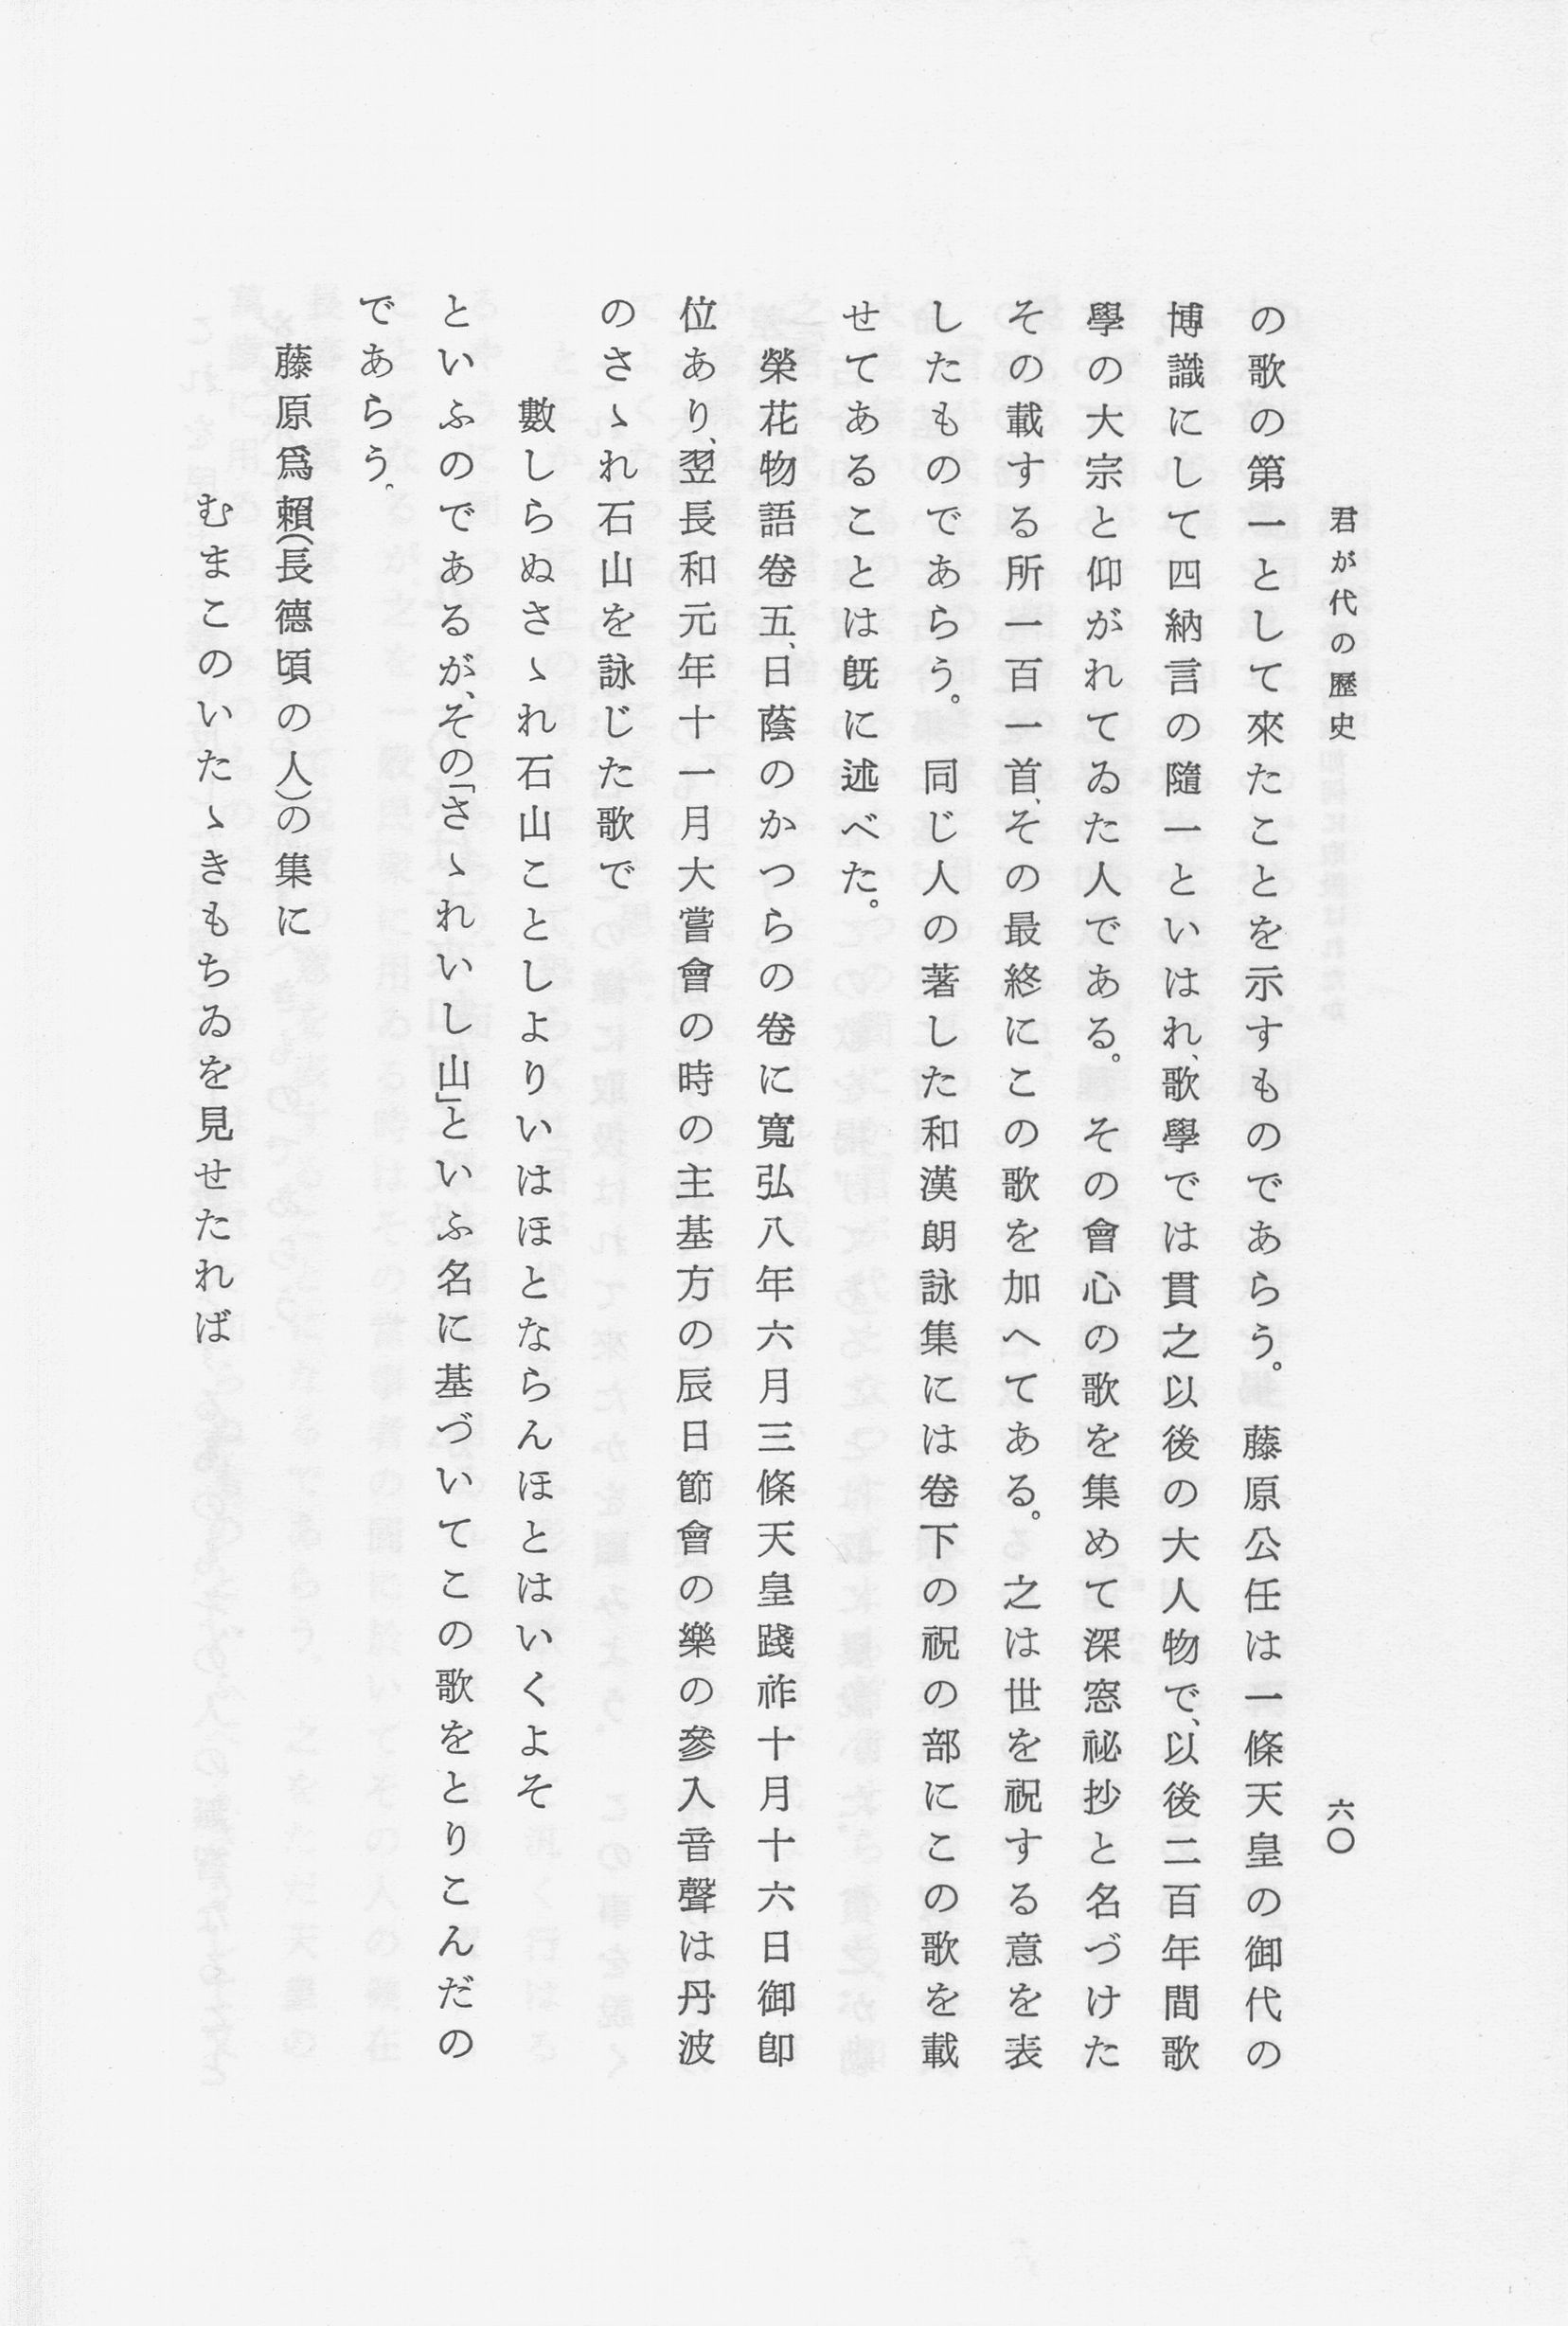 君が代の歷史
六〇
の歌の第一として來たことを示すものであらう。　藤原公任は一條天皇の御代の
博識にして四納言の隨一といはれ、歌學では貫之以後の大人物で、以後二百年間歌
學の大宗と仰がれてゐた人である。　その會心の歌を集めて深窓祕抄と名づけた
その載する所一百一首、その最終にこの歌を加へてある。　之は世を祝する意を表
したものであらう。　同じ人の著した和漢朗詠集には卷下の祝の部にこの歌を載
せてあることは旣に述べた。
榮花物語卷五、日蔭のかつらの卷に寬弘八年六月三條天皇踐祚十月十六日御卽
位あり、翌長和元年十一月大嘗會の時の主基方の辰日節會の樂の參入音聲は丹波
のさゝれ石山を詠じた歌で
數しらぬさゝれ石山ことしよりいはほとならんほとはいくよそ
といふのであるが、その「さゝれいし山」といふ名に基づいてこの歌をとりこんだの
であらう。
藤原爲賴（長德頃の人）の集に
むまこのいたゝきもちゐを見せたれば